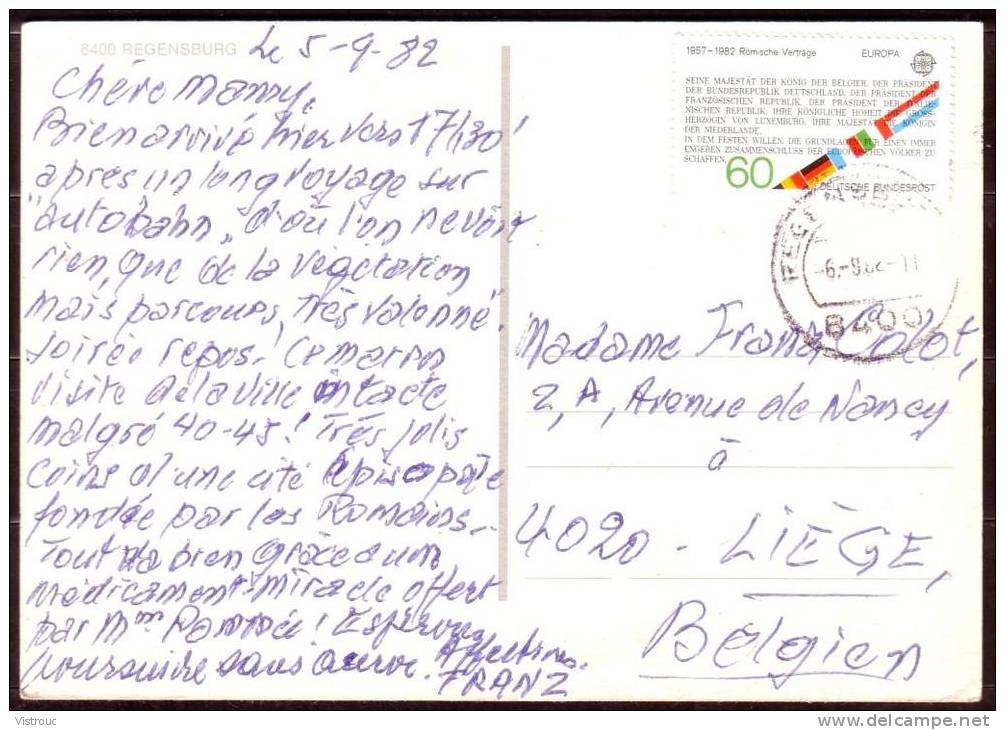 8400 REGENSBURG
Le 5-9-82
Chère Mamy,
Bien arrivé hier vers 17h30'
après un long voyage sur
"autobahn" d'où l'on ne voit
rien, que de la végétation
mais parcours "très valonné".
Soirée repos! Ce matin
visite de la ville intacte
malgré 40-45! Très jolis
coins d'une cité épiscopale
fondée par les Romains...
Tout va bien grâce à un
médicament-miracle offert
par Mme ! Espérons
poursuivre sans
FRANZ
1957-1982 Römische Verträge EUROPA
SEINE MAJESTÄT DER KÖNIG DER BELGIER, DER PRÄSIDENT
DER BUNDESREPUBLIK DEUTSCHLAND, DER PRÄSIDENT DER
FRANZÖSISCHEN REPUBLIK, DER PRÄSIDENT DER ITALIE-
NISCHEN REPUBLIK, IHRE KÖNIGLICHE HOHEIT DIE GROSS-
HERZOGIN VON LUXEMBURG, IHRE MAJESTÄT DIE KÖNIGIN
DER NIEDERLANDE,
IN DEM FESTEN WILLEN, DIE GRUNDLAGEN FÜR EINEN IMMER
ENGEREN ZUSAMMENSCHLUSS DER EUROPÄISCHEN VÖLKER ZU
SCHAFFEN,
60
DEUTSCHE BUNDESPOST
REGENSBURG
8400
Madame Franz
2, A, Avenue de Nancy
à
4020 - LIÈGE,
Belgien
Vistrouc
delcampe.net